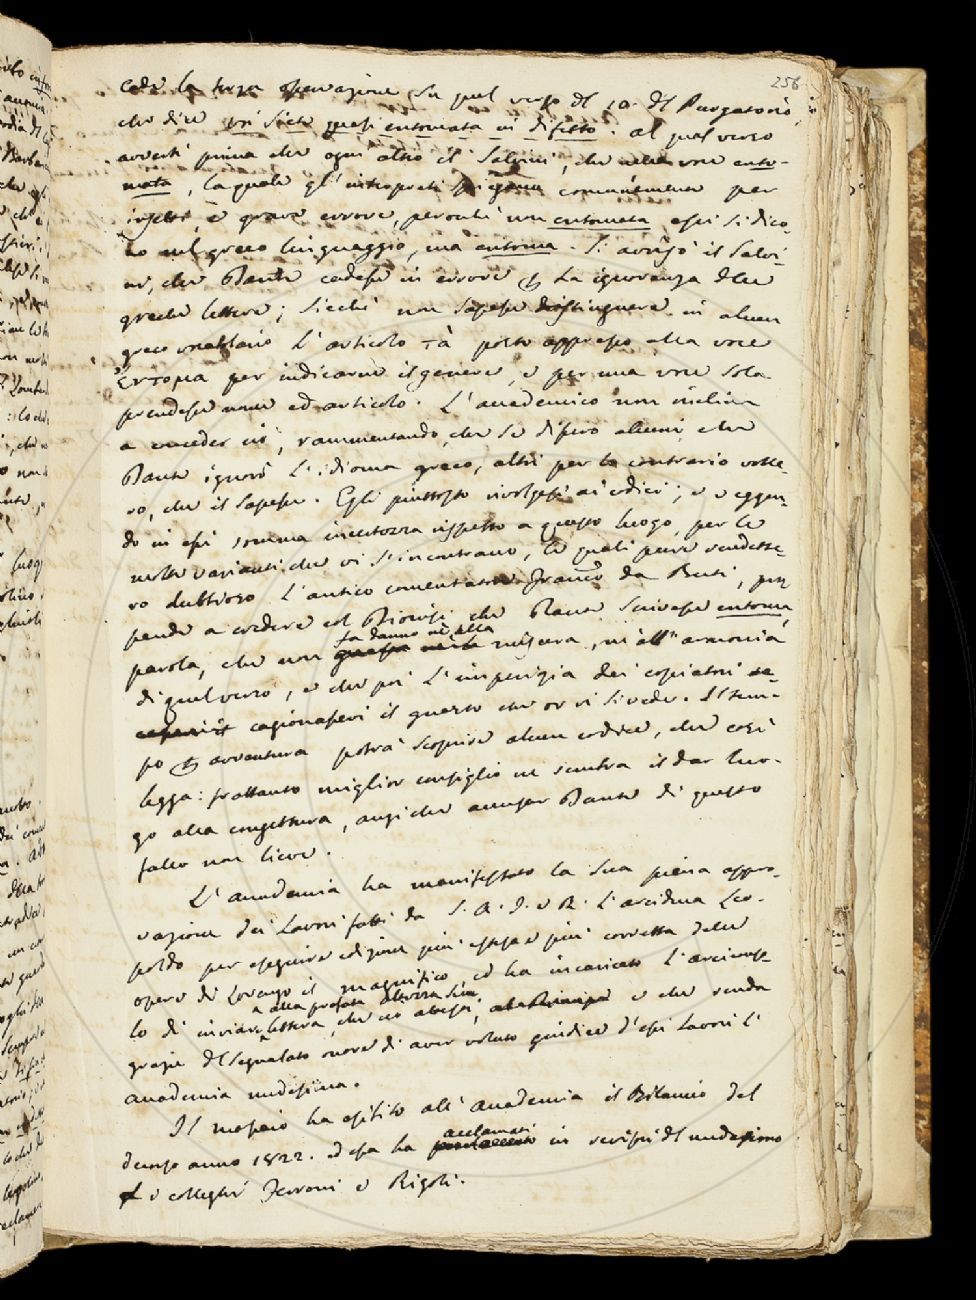 256
cede la terza operazione su quel verso del 10. del Purgatorio,
che dice voi siete quasi entomata in difetto. al qual verso
avvertì prima che ogni altro il Salvini, che nella voce ento-
mata, la quale gl'interpreti spiegano comunemente per
insetti, è grave errore, perocchè non entomata essi si dico-
no nel greco linguaggio, ma entoma. Si avvisò il Salvi-
ni, che Dante cadesse in errore per la ignoranza delle
greche lettere; sicchè non sapesse distinguere in alcun
greco vocabolario l'articolo τὰ posto appresso alla voce
ἔντομα per indicarne il genere, e per una voce sola
prendesse nome ed articolo. L'accademico non inclina
a conceder ciò, rammentando, che se dissero alcuni, che
Dante ignorò l'idioma greco, altri per lo contrario volle-
ro, che il sapesse. Egli piuttosto rivolgesi ai codici; e veggen-
do in essi somma incertezza rispetto a questo luogo, per le
molte varianti che vi s'incontrano, le quali pure rendette-
ro dubbioso l'antico comentatore Franco da Buti, pro-
pende a credere col Dionisi che Dante scrivesse entoma
fa danno nè alla
parola, che non misura, nè all'armonia
di quel verso, e che poi l'imperizia dei copiatori
cagionassevi il guasto che or vi si vede. Il tem-
po per avventura potrà scoprire alcun codice, che così
legga: frattanto miglior consiglio ne sembra il dar luo-
go alla congettura, anzi che accusar Dante di questo
fallo non lieve.
L'accademia ha manifestato la sua piena appro-
vazione dei lavori fatti da S. A. I. e R. l'arciduca Leo-
poldo per eseguire edizione più estesa e più corretta delle
opere di Lorenzo il magnifico, ed ha incaricato l'arciconso-
alla prefata Altezza Sua
lo di inviare lettera, che ciò attesti, e che renda
grazie del segnalato onore di aver voluto giudice d'essi lavori l'
accademia medesima.
Il massaio ha esibito all'accademia il Bilancio del
acclamati
decorso anno 1822. ed essa ha in revisori del medesimo
i colleghi Ferroni e Rigoli.